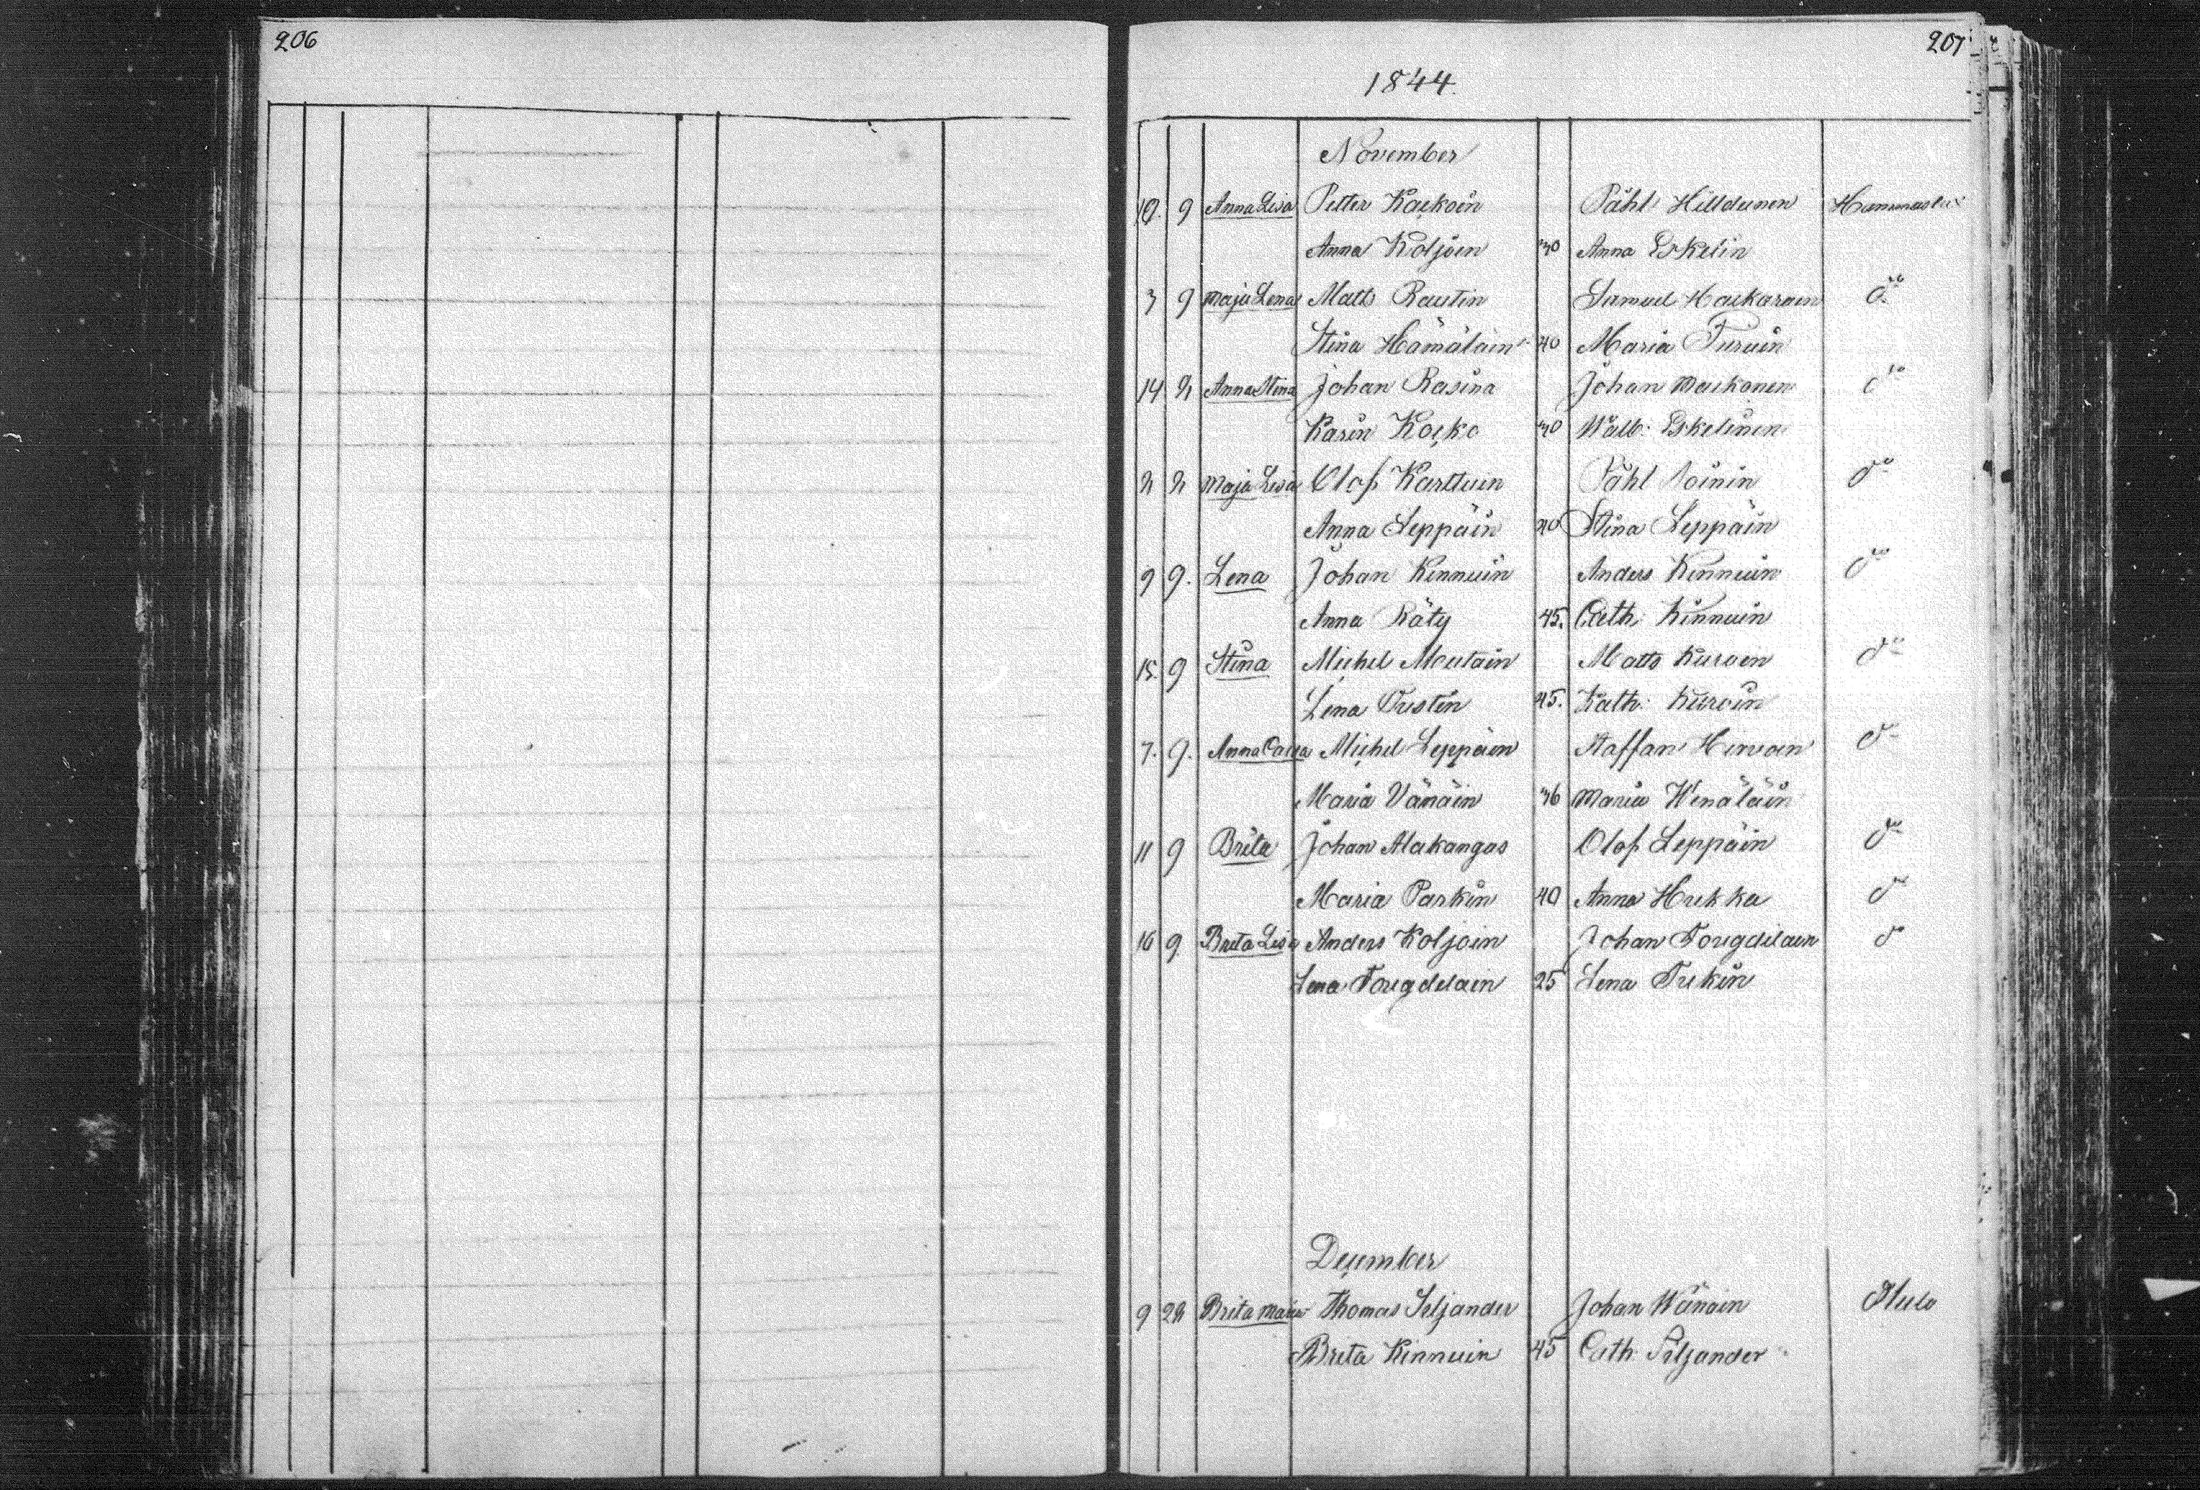 206
207
1844.
November
10. 9 Anna Lisa Petter Kaekoin Påhl Hilldunen
Anna Koljoin 30 Anna Eskelin
3 9 Maja Lena Matts Rautin Samuel Haukarain do
Stina Hämäläin 40 Maria Turuin
14 Anna Stina Johan Rasina Johan Maukonen do
Karin Kocko 30 Walb: Eskelinen
Maja Lisa Olof Karttuin Påhl Noinin do
Anna Leppäin 40 Stina Leppäin
9 9. Lena Johan Kinnuin Anders Kinnuin do
Anna Räty 45. Cath: Kinnuin
15. 9 Stina Michel Moutain Matts Kuroen do
Lena Tustin 45. Kath: Kuroin
7. 9. Anna Caisa Michel Leppäin Staffan Hirvoin do
Maria Vänäin 36 Maria Wenäläin
11 9 Brita Johan Makangas Olof Leppäin do
Maria Parkin 40 Anna Hukka do
16 9. Brita Lisa Anders Koljoin Johan Tougdilain do
Lena Tougdilain 25 Lena Tukin
December
9 Brita Maria Thomas Siljander Johan Wänäin
Brita Kinnuin 45 Cath: Siljander